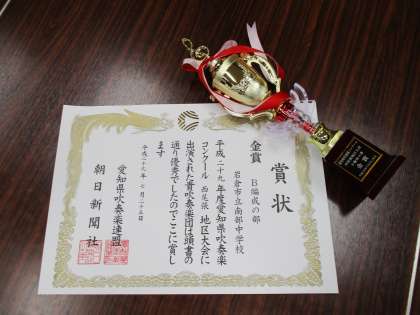 賞状
金賞
B編成の部
岩倉市立南部中学校
平成二十九年度愛知県吹奏楽
コンクール 西尾張 地区大会に
出演された貴吹奏楽団は頭書の
通り優秀でしたのでここに賞し
ます
愛知県吹奏楽連盟
朝日新聞社